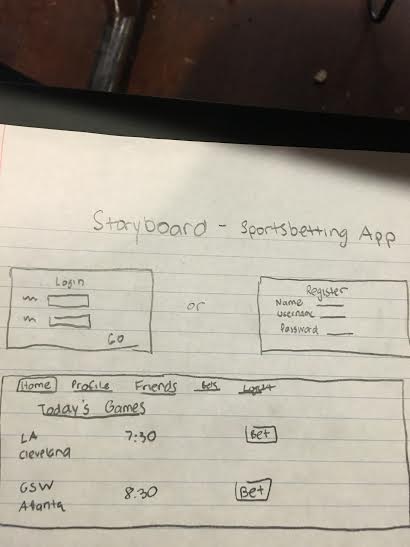 Storyboard - Sportsbetting App
Login
GO
or
Register
Name
username
Password
Home Profile Friends Bets Logout
Today's Games
LA 7:30 Bet
Cleveland
GSW 8:30 Bet
Atlanta